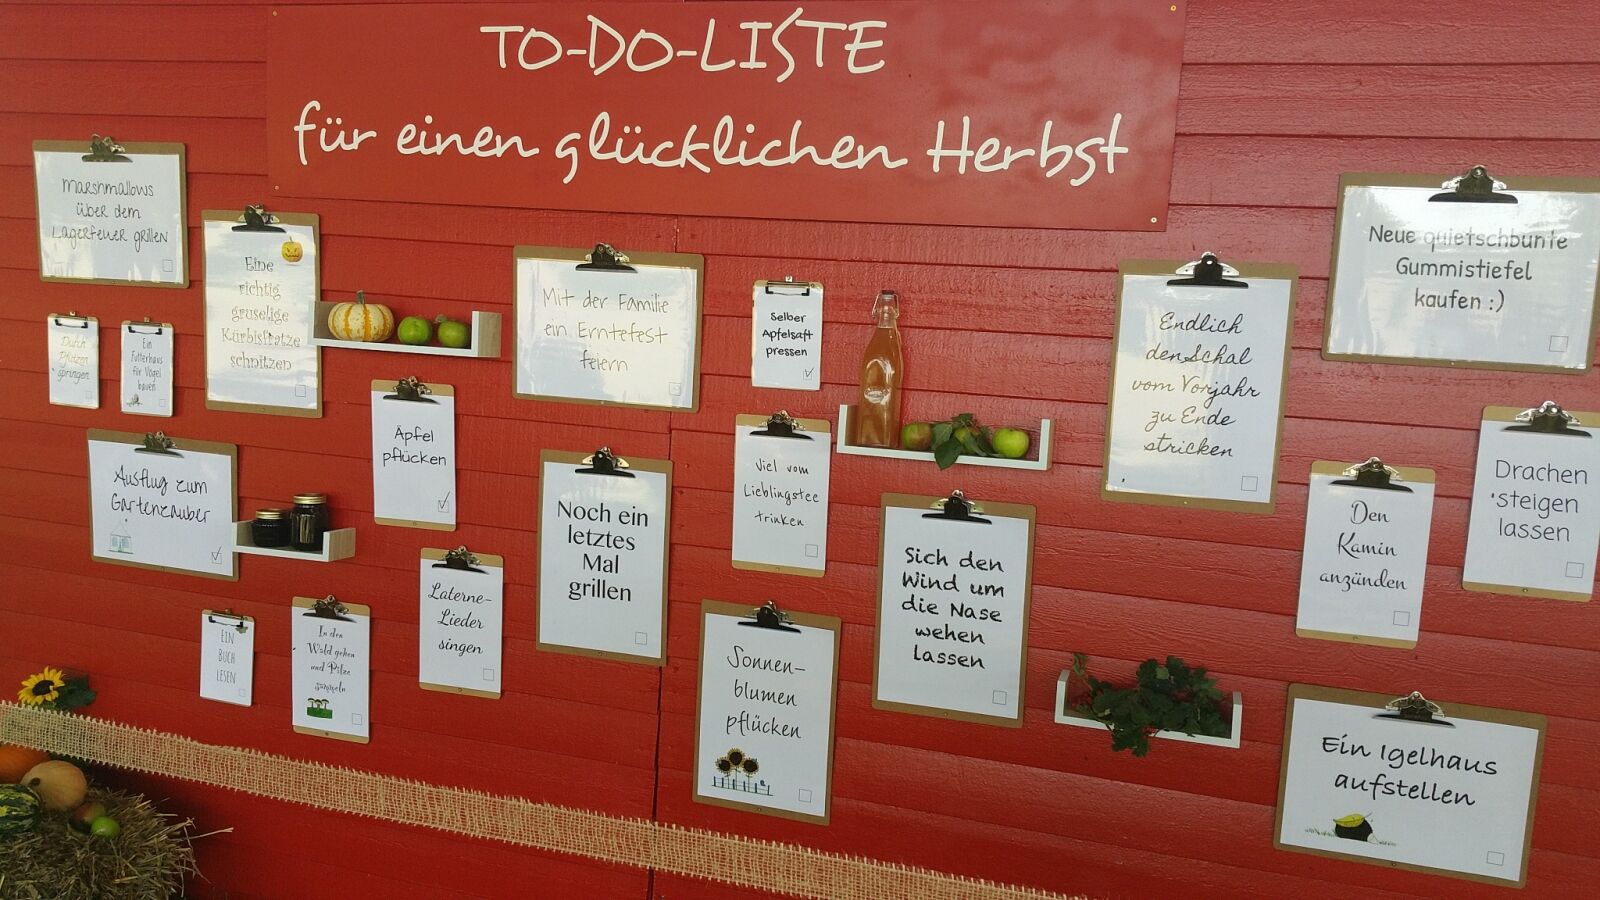 TO-DO-LISTE
für einen glücklichen Herbst
Marshmallows
über dem
Lagerfeuer grillen
Eine
richtig
gruselige
Kürbisfratze
schnitzen
Durch
Pfützen
springen
Ein
Futterhaus
für Vögel
bauen
Ausflug zum
Gartenzauber
Äpfel
pflücken
EIN
BUCH
LESEN
In den
Wald gehen
und Pilze
sammeln
Laterne-
Lieder
singen
Mit der Familie
ein Erntefest
feiern
Noch ein
letztes
Mal
grillen
Selber
Apfelsaft
pressen
Viel vom
Lieblingstee
trinken
Sonnen-
blumen
pflücken
Sich den
Wind um
die Nase
wehen
lassen
Endlich
den Schal
vom Vorjahr
zu Ende
stricken
Neue quietschbunte
Gummistiefel
kaufen :)
Den
Kamin
anzünden
Drachen
steigen
lassen
Ein Igelhaus
aufstellen